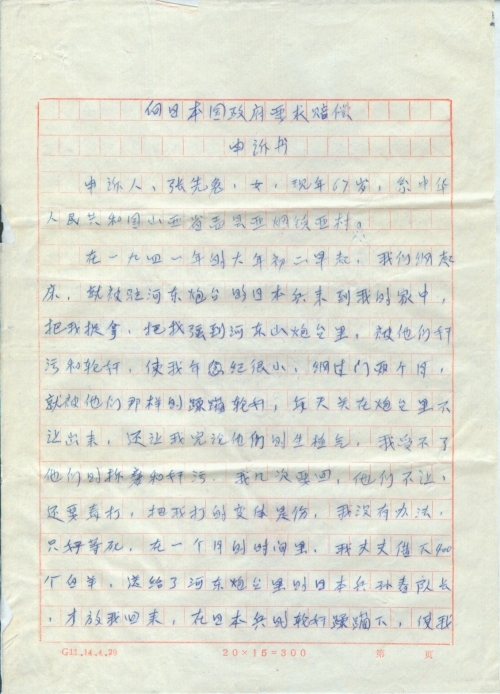 向日本国政府要求赔偿
申诉书
申诉人、张先兔,女,现年67岁,系中华
人民共和国山西省盂县西烟镇西村。
在一九四一年的大年初二早起,我们刚起
床,就被驻河东炮台的日本兵来到我的家中,
把我抓拿,把我强到河东山炮台里,被他们奸
污和轮奸,使我年纪很小,刚过门两个月,
就被他们那样的蹂躏轮奸,每天关在炮台里不
让出来,还让我 他们的生殖气,我受不了
他们的 和奸污,我几次要回,他们不让,
还要毒打,把我打的变体是伤,我没有办法,
只好等死,在一个月的时间里,我丈夫借下400
个白羊,送给了河东炮台里的日本兵 队长
,才放我回来,在日本兵的轮奸蹂躏下,使我
G11.14.4.29 20×15=300 第 页